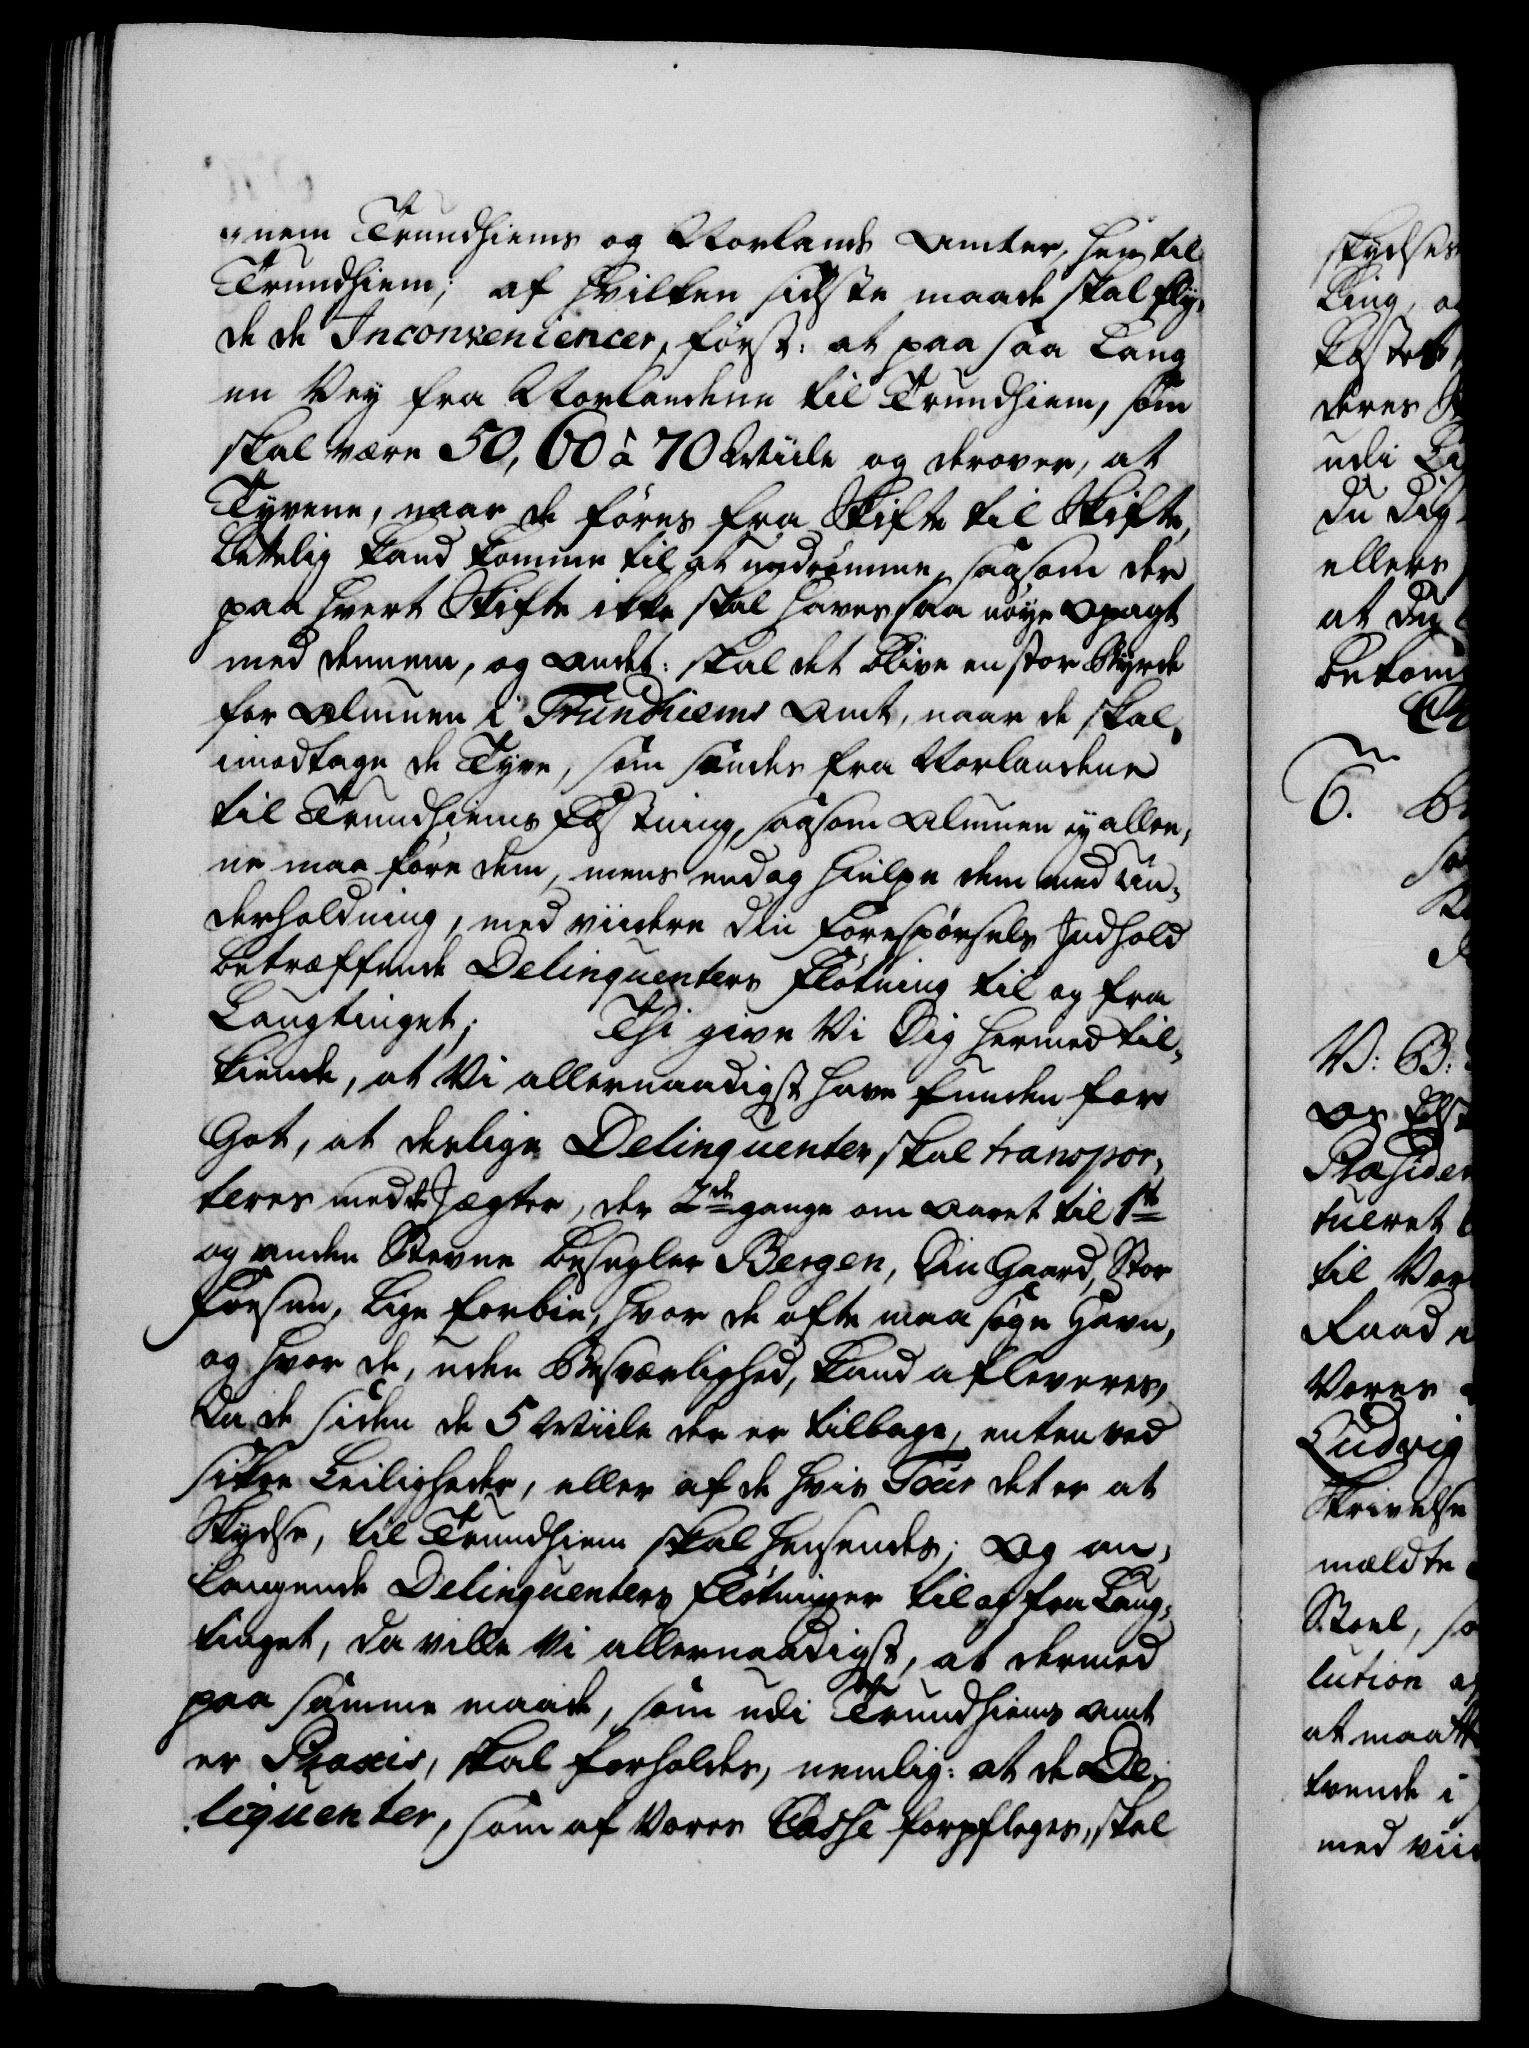 gnem Trundhiems og Norlands Amter, hen til
Trundhiem; af hvilken sidste maade skal fly,
de de Inconveniencer, først: at paa saa Lang
en Vey fra Norlandene til Trundhiem, som
skal være 50, 60 à 70 Miile og derover, at
Tyvene, naar de føres fra Skifte til Skifte,
Lettelig kand komme til at undrømme, saasom der
paa hvert Skifte ikke skal haves saa nøye Opagt
med dennem, og Andet: skal det blive en stor Byrde
for Almuen i Trundhiems Amt, naar de skal
imodtage de Tyve, som sendes fra Norlandene
til Trundhiems Fæstning, saasom Almuen ey allee,
ne maa føre dem, mens endog hielpe dem med Un,
derholdning, med viidere din Forespørsels Indhold
betræffende Delinquenters Fløtning til og fra
Laugtinget; Thi give Vi Dig hermed til,
kiende, at Vi allernaadigst have funden for
Got, at deslige Delinquenter skal transpor,
teres med de Jægter, der 2de gange om Aaret til 1te
og anden Stevne besegler Bergen, Din Gaard, Stor
Fosen, lige forbie, hvor de ofte maa søge Havn,
og hvor de, uden Besværlighed, kand afleveres,
da de siden de 5 Miile der er tilbage, enten ved
sikre Leiligheder, eller af de hvis Tour det er at
Skydse, til Trundhiem skal hensendes; Og an,
langende Delinquenters Fløtninger til og fra Laug,
tinget, da ville Vi allernaadigst, at dermed
paa samme maade, som udi Trundhiems Amt
er Praxis, skal forholdes, nemlig: at de De,
liquenter, som af Vores Casse forpfleges, skal